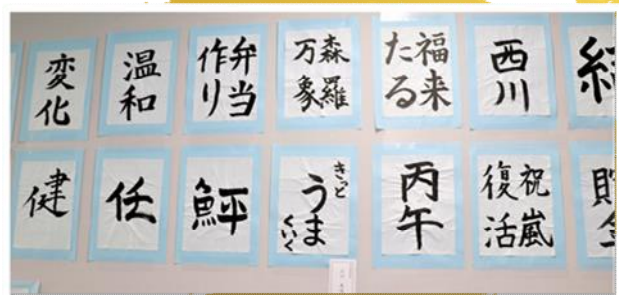 変化
温和
弁当
作り
森羅
万象
福来
たる
西川
健
任
鮃
きっと
うま
くいく
丙午
祝嵐
復活